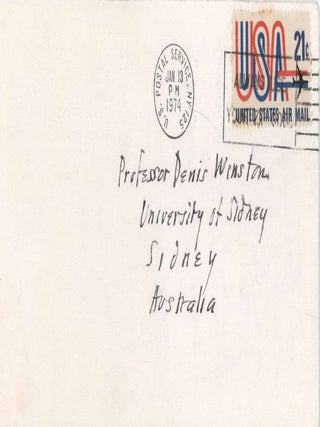 U.S. POSTAL SERVICE, NY 125
JAN 13
PM
1974
USA 21c
UNITED STATES AIR MAIL
Professor Denis Winston
University of Sidney
Sidney
Australia